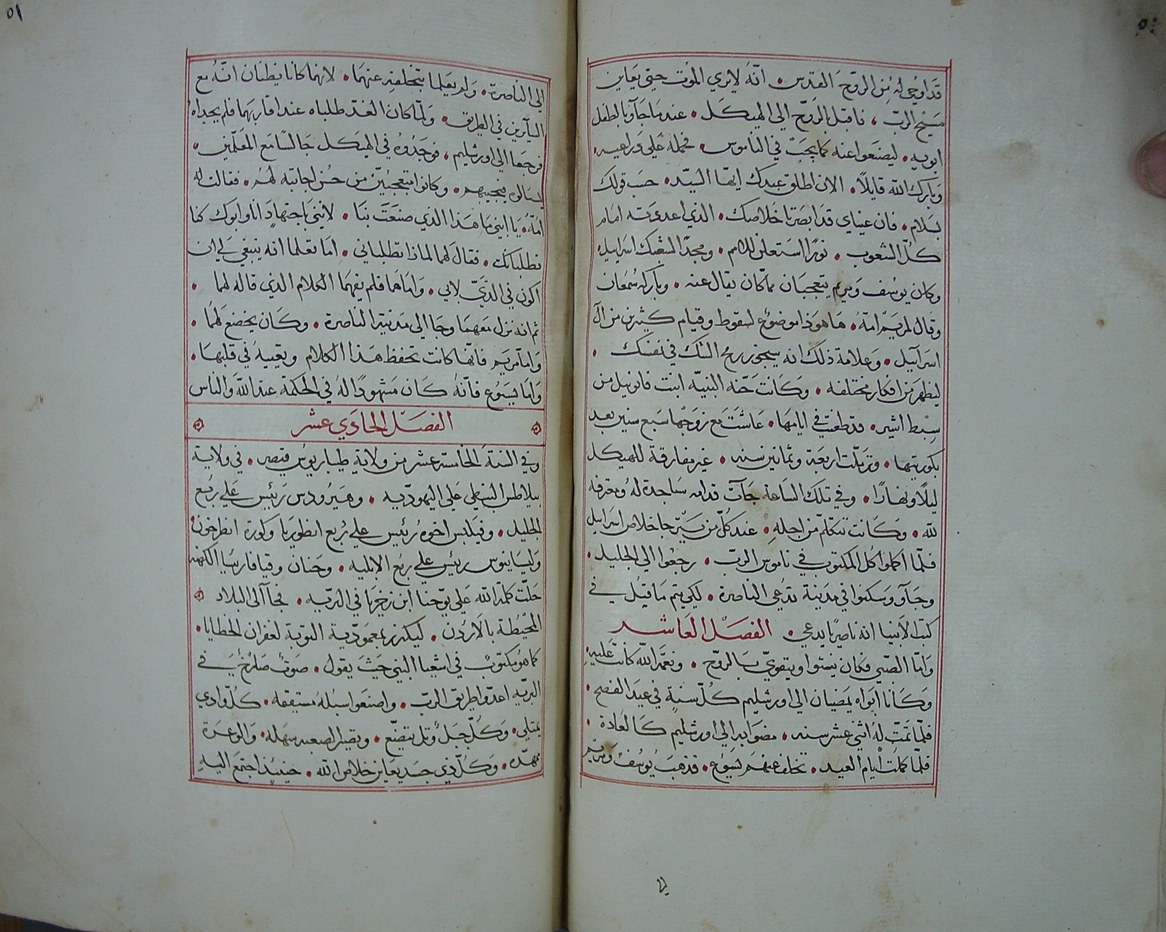 قد اوحي له من الروح القدس. انه لا يري الموت حتي يعاين
مسيح الرب، فاقبل بالروح الي الهيكل. عندما جآوا بالطفل
ابويه. ليصنعوا عنه كما يجب في الناموس. فحمله علي ذراعيه.
وبارك الله قايلًا. الان اطلق عبدك ايها السيد. حسب قولك
بسلام. فان عيناي قد ابصرتا خلاصك. الذي اعددته امام
كل الشعوب. نورًا استعلن للامم. ومجدًا لشعبك اسراييل
وكان يوسف ومريم يتعجبان مما كان يقال عنه. وباركهم سمعان
وقال لمريم امه. هاهوذا موضوع لسقوط وقيام كثيرين من ال
اسرآييل. وعلامة ذلك انه سيجوز رمح الشك في نفسك.
ليظهر من افكار مختلفه. وكانت حنه النبيه ابنت فانوييل من
سبط اشير. قد طعنت في ايامها. عاشت مع زوجها سبع سنين بعد
بكوريتها. وترملت اربعة وثمانين سنه. غير مفارقة للهيكل
ليلًا ونهارًا. وفي تلك الساعة جآت قدامه ساجدة له ومعترفه
لله. وكانت تتكلم من اجله. عند كل من يترجا خلاص اسراييل
فلما اكملوا كل المكتوب في ناموس الرب. رجعوا الي الجليل.
وجآو وسكنوا في مدينة تدعي الناصرة. لكي يتم ما قيل في
كتب الانبيا انه ناصريًا يدعي. الفصل العاشر
واما الصبي فكان ينشوا ويتقوي بالروح. ونعمة الله كانت عليه.
وكانا ابواه يمضيان الي اورشليم كل سنة في عيد الفصح.
فلما تمت له اثني عشر سنه. مضوا به الي اورشليم كالعادة
فلما كملت ايام العيد. تخلف عنهم يسوع. فذهب يوسف ومريم
٥١
الي الناصرة. ولم يعلما بتخلفه عنهما. لانهما كانا يظنان انه مع
السآيرين في الطريق. ولما كان الغد طلباه عند اقاربهما فلم يجداه
فرجعا الي اورشليم. فوجدوه في الهيكل جالسًا مع المعلمين.
يسال ويجيبهم. وكانوا متعجبين من حسن اجابته لهم. فقالت له
امه. يا ابني ما هذا الذي صنعت بنا. لانني باجتهاد انا وابوك كنا
نطلبك. فقال لهما لماذا تطلباني. اما تعلما انه ينبغي لي ان
اكون في الذي لابي. واماهما فلم يفهما الكلام الذي قاله لهما.
ثم انه نزل معهما وجا الي مدينة الناصرة. وكان يخضع لهما.
واما مريم فانها كانت تحفظ هذا الكلام وتعييه في قلبها.
واما يسوع فانه كان مشهودًا له في الحكمة عند الله والناس
الفصل الحادي عشر
وفي السنة الخامسة عشر من ولاية طيباريوس قيصر. في ولاية
بيلاطس النبطي علي اليهوديه. وهيرودس رييس علي ربع
الجليل. وفيلبس اخوه رييس علي ربع انطوريا وكورة انطرخون
وليسانيوس رييس علي ربع الابليه. وحنان وقيافا رييسا الكهنه
حلت كلمة الله علي يوحنا ابن زخريا في البريه. فجآ الي البلاد
المحيطة بالاردن. ليكرز بمعمودية التوبة لغفران الخطايا.
كما هو مكتوب في اشعيا النبي حيث يقول. صوت صارخ في
البريه اعدوا طريق الرب. واصنعوا سبله مستقيمه. كل وادي
يمتلي. وكل جبل وتل يتضع. وتصير الصعبه سهله. والوعرة
مهده. وكل ذي جسد يعاين خلاص الله. حينيذ اجتمع اليه